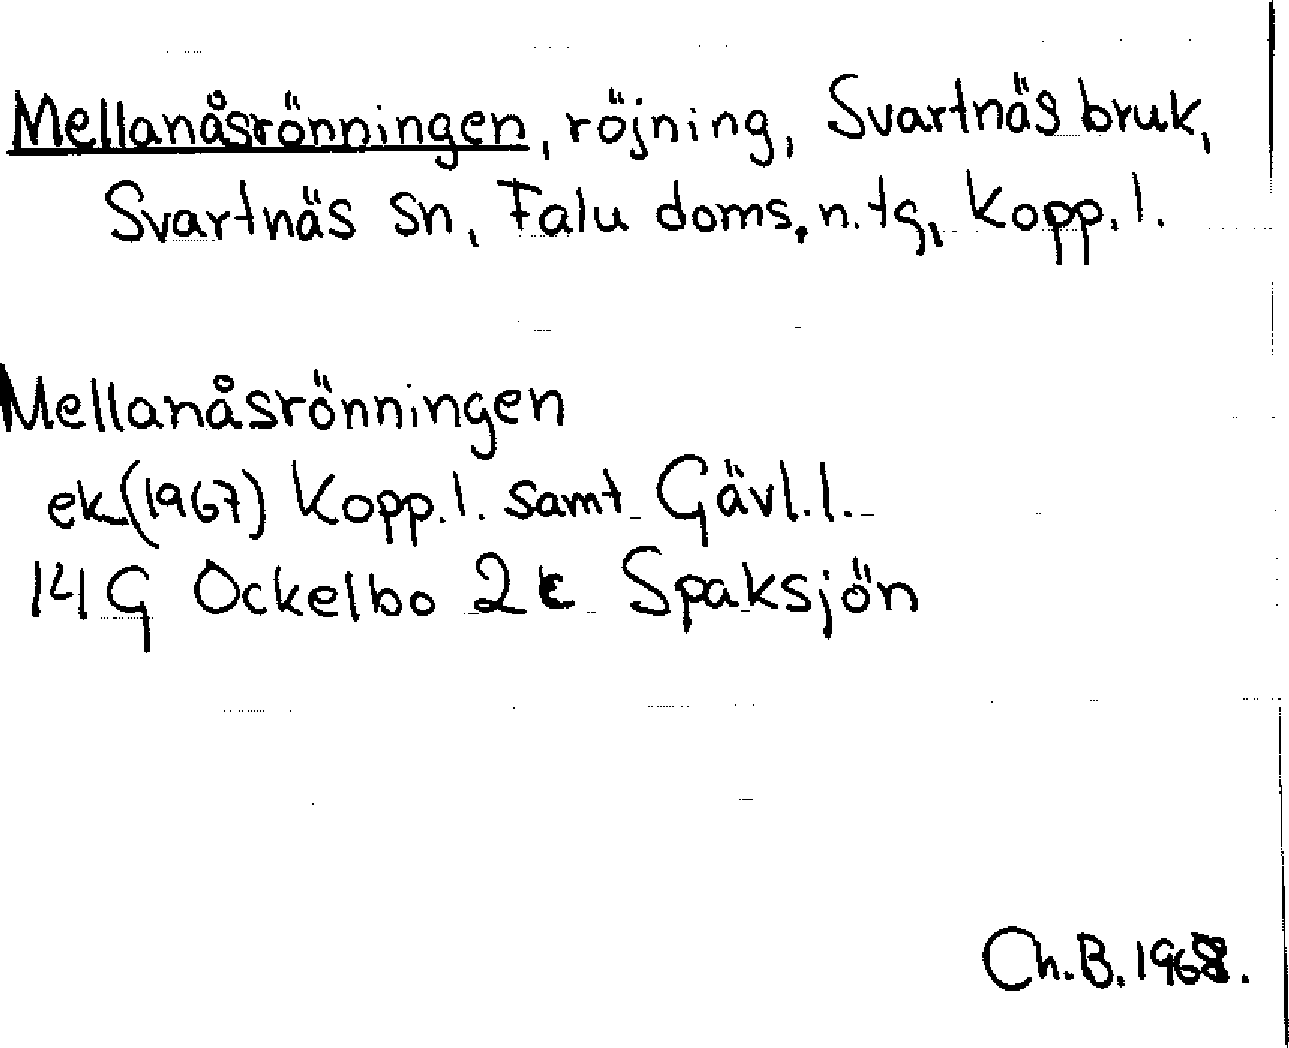 Mellanåsrönningen, röjning, Svartnäs bruk,
Svartnäs sn, Falu doms. n. tg, Kopp. l.
Mellanåsrönningen
ek (1967) Kopp. l. samt Gävl. l.
14G Ockelbo 2c Spaksjön
Ch. B. 1968.